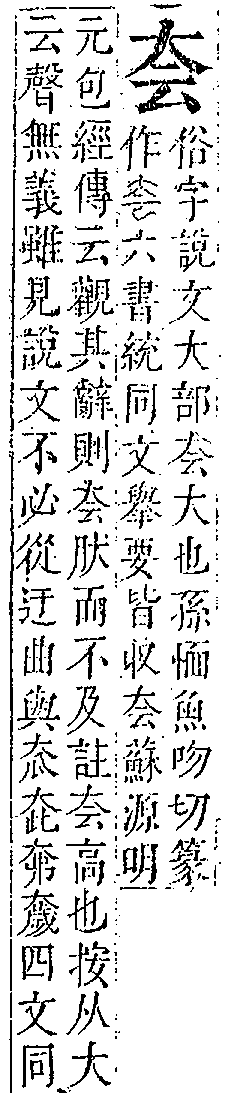 夽
俗字說文大部夽大也孫愐魚吻切篆
作六書統同文舉要皆收夽蘇源明
元包經傳云觀其辭則夽肰而不及註夽高也按从大
云聲無義雖見說文不必從迂曲與奃奯四文同